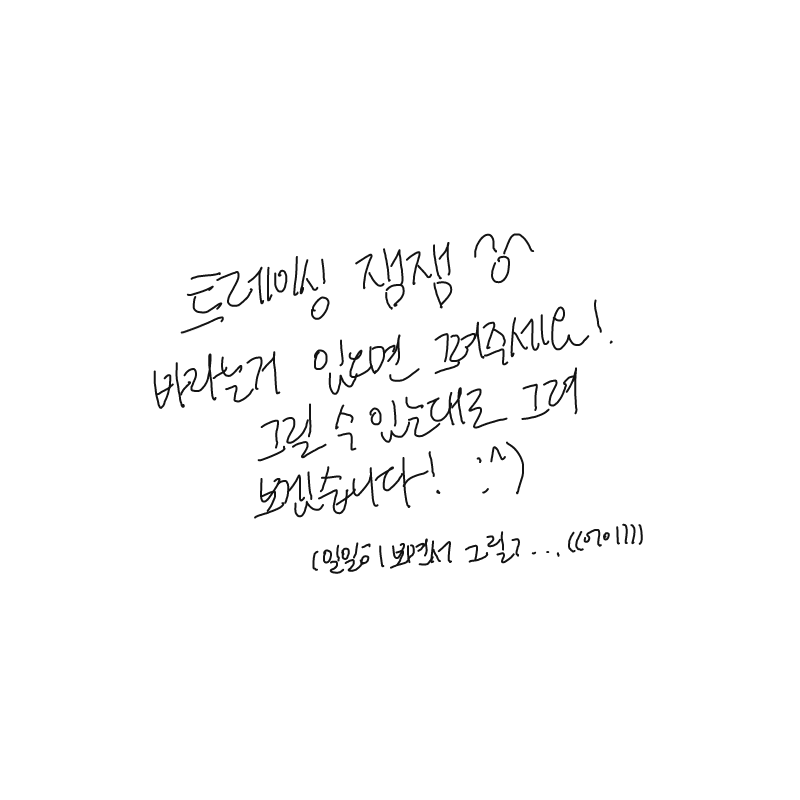 트레이싱 잼잼
바라는거 있으면 그려주세요!
그릴 수 있는대로 그려
보겠습니다! :^)
(일일히 봐면서 그릴거...